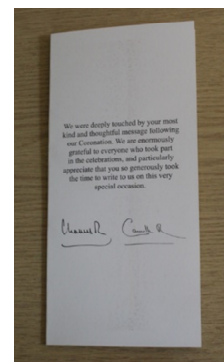 We were deeply touched by your most
kind and thoughtful message following
our Coronation. We are enormously
grateful to everyone who took part
in the celebrations, and particularly
appreciate that you so generously took
the time to write to us on this very
special occasion.
Charles R Camilla R